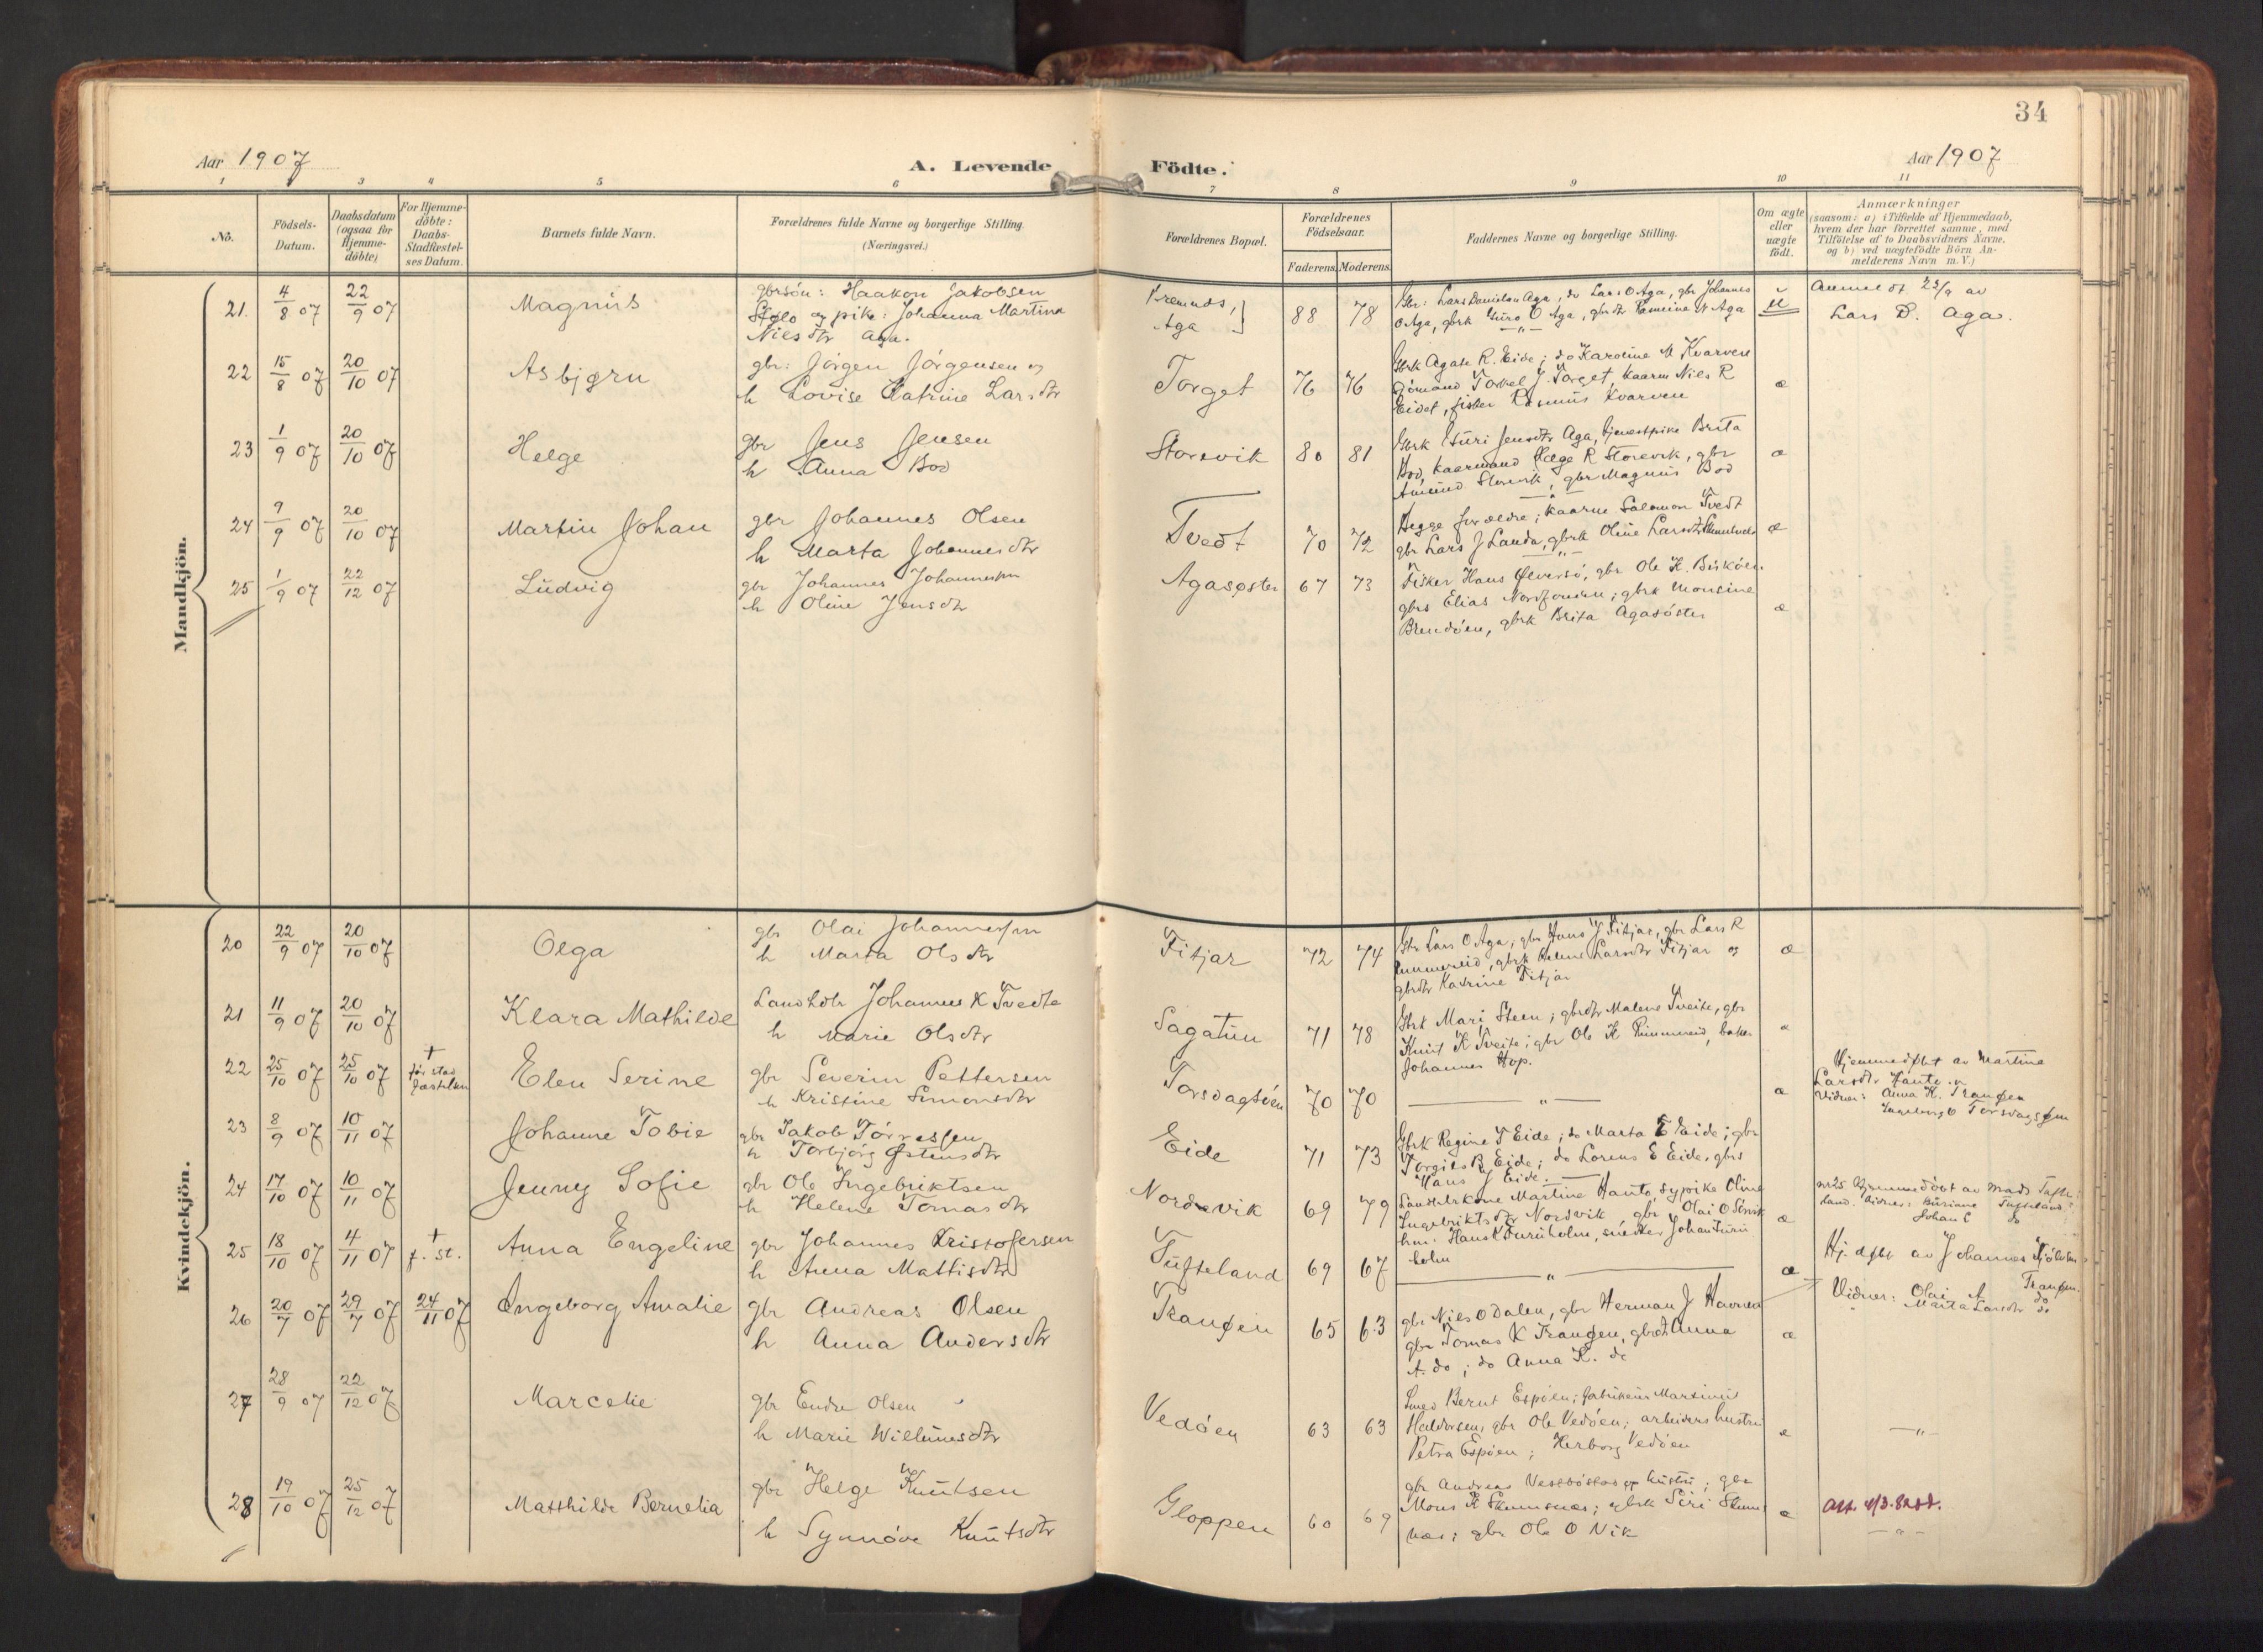 34
Aar 1907
A. Levende Födte.
Aar 1907
1 3 4 5 6 7 8 9 10 11
No.
Födsels-Datum.
Daabsdatum (ogsaa for Hjemme-döbte)
For Hjemme-döbte: Daabs-Stadfæstel-ses Datum.
Barnets fulde Navn.
Forældrenes fulde Navne og borgerlige Stilling.
(Næringsvei.)
Forældrenes Bopæl.
Forældrenes Födselsaar.
Faderens. Moderens.
Faddernes Navne og borgerlige Stilling.
Om ægte eller uægte födt.
Anmærkninger
(saasom: a) i Tilfælde af Hjemmedaab,
hvem der har forrettet samme, med
Tilföielse af to Daabsvidners Navne,
og b) ved uægtefödte Börn An-
melderens Navn m. V.)
Mandkjön.
21. 4/8 07 22/9 07 Magnus
gbrsön: Haakon Jakobsen
og pike: Johanna Martina
Nilsdtr Aga.
Aga 88 78
Gbr: Lars Danielsen Aga, do Lars O Aga, gbr Johannes
O Aga, gbrk Guro O Aga, gbrdtr N Aga
u
Anmeldt 22/9 av
Lars D. Aga.
22 15/8 07 20/10 07 Asbjørn
gbr: Jörgen Jörgensen og
h Lovise Katrine Larsdtr
Torget 76 76
Gbrk Agate R. Eide; do Karoline M Kvarven
Torkel J. Torget, kaarm Nils R
Eidet, fisker Rasmus Kvarven
æ
23 1/9 07 20/10 07 Helge
gbr Jens Jensen
h Anna Bod
Storevik 80 81
Gbrk Guri Jensdtr Aga, tjenestpike Brita
Bod, kaarmand Helge R Storevik, gbr
Amund Storevik, gbr Magnus Bod
æ
24 7/9 07 20/10 07 Martin Johan
gbr Johannes Olsen
h Marta Johannesdtr
Tvedt 70 72
Begge forældre; kaarm Salomon Tvedt
gbr Lars J Landa, gbrk Oline Larsdtr
æ
25 1/9 07 22/12 07 Ludvig
gbr Johannes Johannessen
h Oline Jensdtr
Agasøster 67 73
Fisker Hans gbr Ole K.
gbrs Elias gbrk Monsine
gbrk Brita Agasöster
æ
Kvindekjön.
20 22/9 07 20/10 07 Olga
gbr Olai Johannessen
h Marta Olsdtr
Fitjar 72 74
Gbr Lars O Aga; gbr Hans J Fitjar, gbr Lars R
Rimmereid, gbrk Larsdtr Fitjar og
gbrdtr Katrine Fitjar
æ
21 11/9 07 20/10 07 Klara Mathilde
Landhdlr Johannes K Tvedte
h Marie Olsdtr
Sagatun 71 78
Gbrk Mari Steen; gbrdtr Malene Tveite, gbr
Knut K Tveite; gbr Ole K Rimmereid, baker
Johannes Hop.
æ
22 25/10 07 25/10 07 † för stad fæstelsen Elen Serine
gbr Severin Pettersen
h Kristine Simonsdtr
Torsdagsöen 70 70
— " —
æ
Hjemmedøbt av Martine
Larsdtr
Vidner: Anna K. Trangøen
Ingeborg O Torsdagsøen
23 8/9 07 10/11 07 Johanne Tobie
gbr Jakob Törressen
h Torbjörg Østensdtr
Eide 71 73
Gbrk Regine T Eide; do Marta E Eide; gbr
Torgils B Eide; do Lorens E Eide, gbrs
Hans J Eide.
24 17/10 07 10/11 07 Jenny Sofie
gbr Ole Ingebriktsen
h Helene Tomasdtr
Nordvik 69 79
Martine sypike Oline
Ingebriktsdtr Nordvik gbr Olai O
Hans K Furuholm, snedker Johan Furu
holm
æ
nr 25 Hjemmedöbt av Mads Tufte-
land. Vidner: Tufteland
Johan do
25 18/10 07 4/11 07 † f. st. Anna Engeline
gbr Johannes Kristofersen
h Anna Mattisdtr
Tufteland 69 67
— " —
æ
26 20/7 07 29/7 07 24/11 07 Ingeborg Amalie
gbr Andreas Olsen
h Anna Andersdtr
Trangøen 65 63
gbr Nils O Dalen, gbr Herman J Havnen
gbr Tomas K Trangøen, gbrdtr Anna
A. do; do Anna K. do
æ
Hj. døbt av Johannes
Trangøen.
Vidner: Olai A do
Marta Larsdtr do
27 28/9 07 22/12 07 Marcelie
gbr Endre Olsen
h Marie Willumsdtr
Vedöen 63 63
Smed Bernt Espöen; Martinus
Haldorsen, gbr Ole Vedöen; arbeiders hustru
Petra Espöen; Herborg Vedöen
æ
— " —
28 19/10 07 25/12 07 Matthilde Bernelia
gbr Helge Knutsen
h Synnöve Knutsdtr
Gloppen 60 69
gbr Andreas og hustru; gbr
Mons H Skumsnes; gbrk Siri Skums
nes; gbr Ole O Vik
æ
Att. 4/3.82
— " —